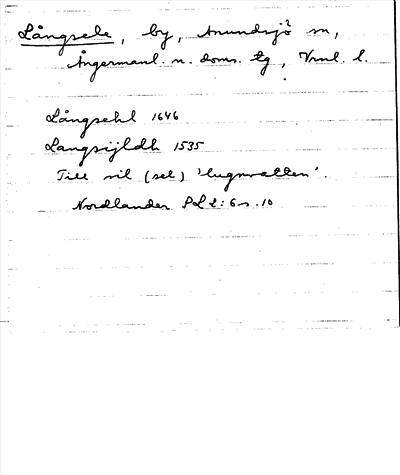 Långsele, by, Anundsjö sn,
Ångermanl. n. doms. tg, Vrnl. l.
Långsehl 1646
Langsijldh 1535
Till sil (sel) 'lugnvatten'.
Nordlander Pol 2:6 s. 10